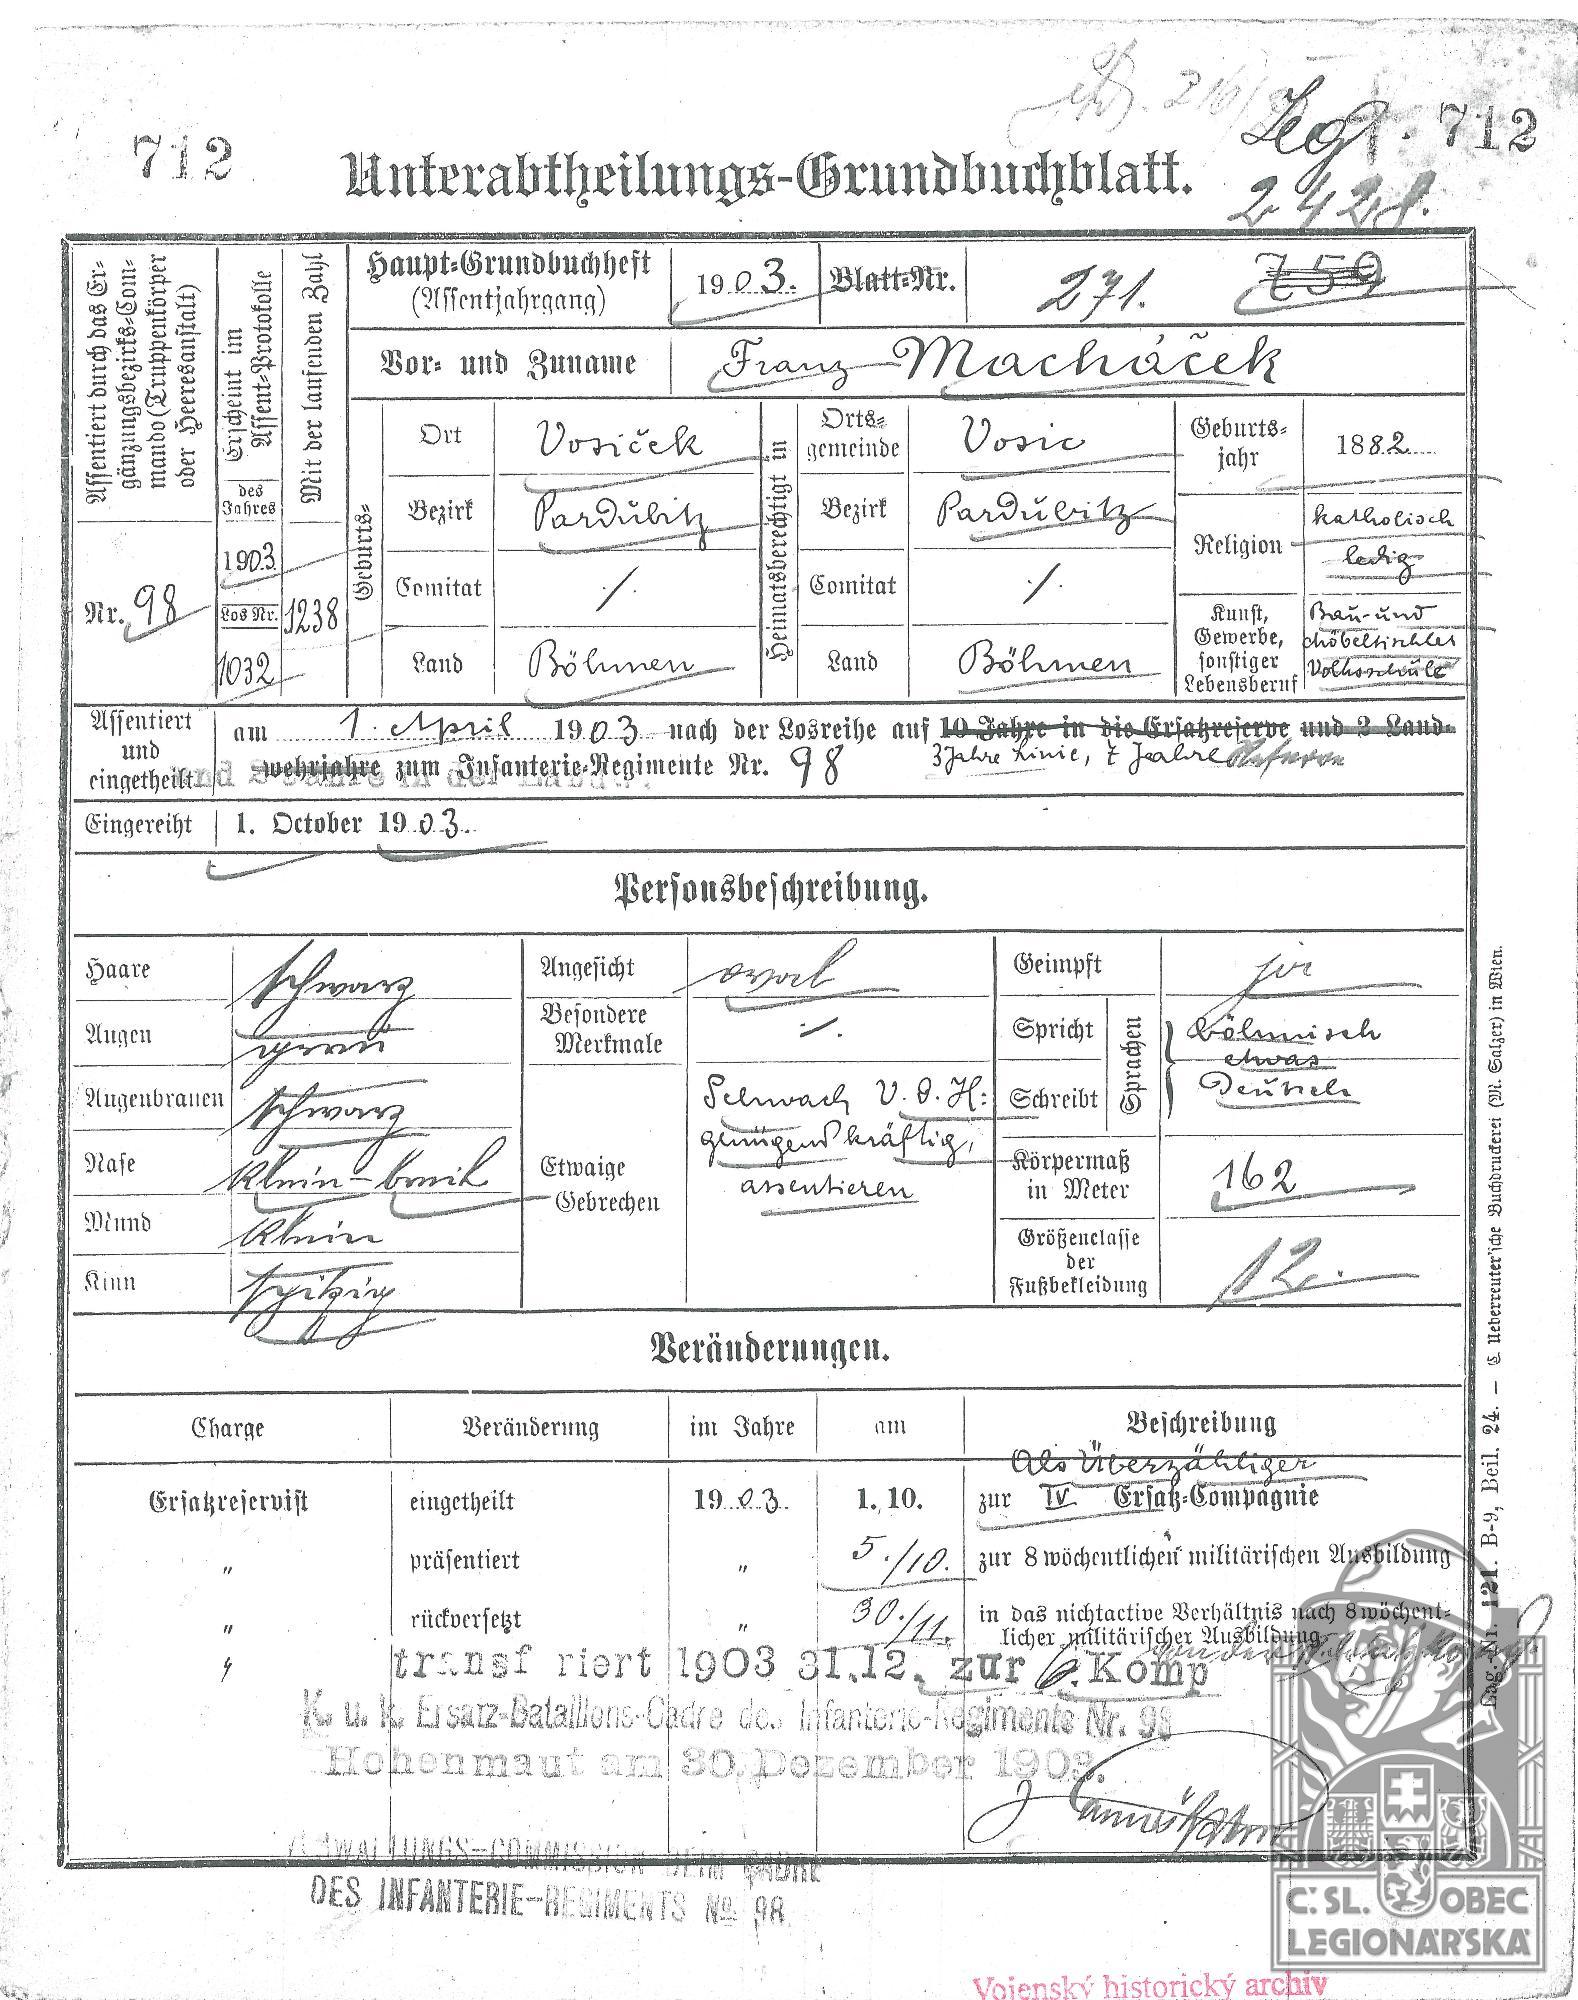 712
Legf. 712
Unterabtheilungs-Grundbuchblatt.
2428.
Assentiert durch das Er-
gänzungsbezirks-Com-
mando (Truppenkörper
oder Heeresanstalt)
Nr. 98
Erscheint im
Assent-Protokolle
des
Jahres
1903
Los Nr.
1032
Mit der laufenden Zahl
1238
Haupt-Grundbuchheft
(Assentjahrgang)
1903.
Blatt-Nr.
271.
759
Vor- und Zuname
Franz Macháček
Geburts-
Ort
Vosiček
Bezirk
Pardubitz
Comitat
./.
Land
Böhmen
Heimatsberechtigt in
Orts-
gemeinde
Vosic
Bezirk
Pardubitz
Comitat
./.
Land
Böhmen
Geburts-
jahr
1882
Religion
katholisch
ledig
Kunst,
Gewerbe,
sonstiger
Lebensberuf
Bau- und
Möbeltischler
Volksschule
Assentiert
und
eingetheilt
am 1. April 1903 nach der Losreihe auf 10 Jahre in die Ersatzreserve und 2 Land-
wehrjahre zum Infanterie-Regimente Nr. 98
3 Jahre Linie, 7 Jahre Reserve
Eingereiht
1. October 1903.
Personsbeschreibung.
Haare
schwarz
Augen
grau
Augenbrauen
schwarz
Nase
klein-breit
Mund
klein
Kinn
spitzig
Angesicht
oval
Besondere
Merkmale
./.
Etwaige
Gebrechen
Schwach V. d. H:
genügend kräftig,
assentieren
Geimpft
ja
Spricht
Schreibt
Sprachen
böhmisch
etwas
Deutsch
Körpermaß
in Meter
162
Größenclasse
der
Fußbekleidung
12.
Veränderungen.
Charge
Veränderung
im Jahre
am
Beschreibung
Als Überzähliger
Ersatzreservist eingetheilt 1903. 1. 10. zur IV Ersatz-Compagnie
" präsentiert " 5./10. zur 8 wöchentlichen militärischen Ausbildung
" rückversetzt " 30./11. in das nichtactive Verhältnis nach 8 wöchent-
licher militärischer Ausbildung
" transferiert 1903 31.12. zur 6. Komp
K. u. k. Ersatz-Bataillons-Cadre des Infanterie-Regiments Nr. 98
Hohenmaut am 30. Dezember 1903.
VERWALTUNGS-COMMISSION BEIM CADRE
DES INFANTERIE-REGIMENTS No 98
Lag.-Nr. 121. B-9, Beil. 24. — C. Ueberreuter'sche Buchdruckerei (M. Salzer) in Wien.
Č. SL. OBEC
LEGIONÁŘSKÁ
Vojenský historický archiv